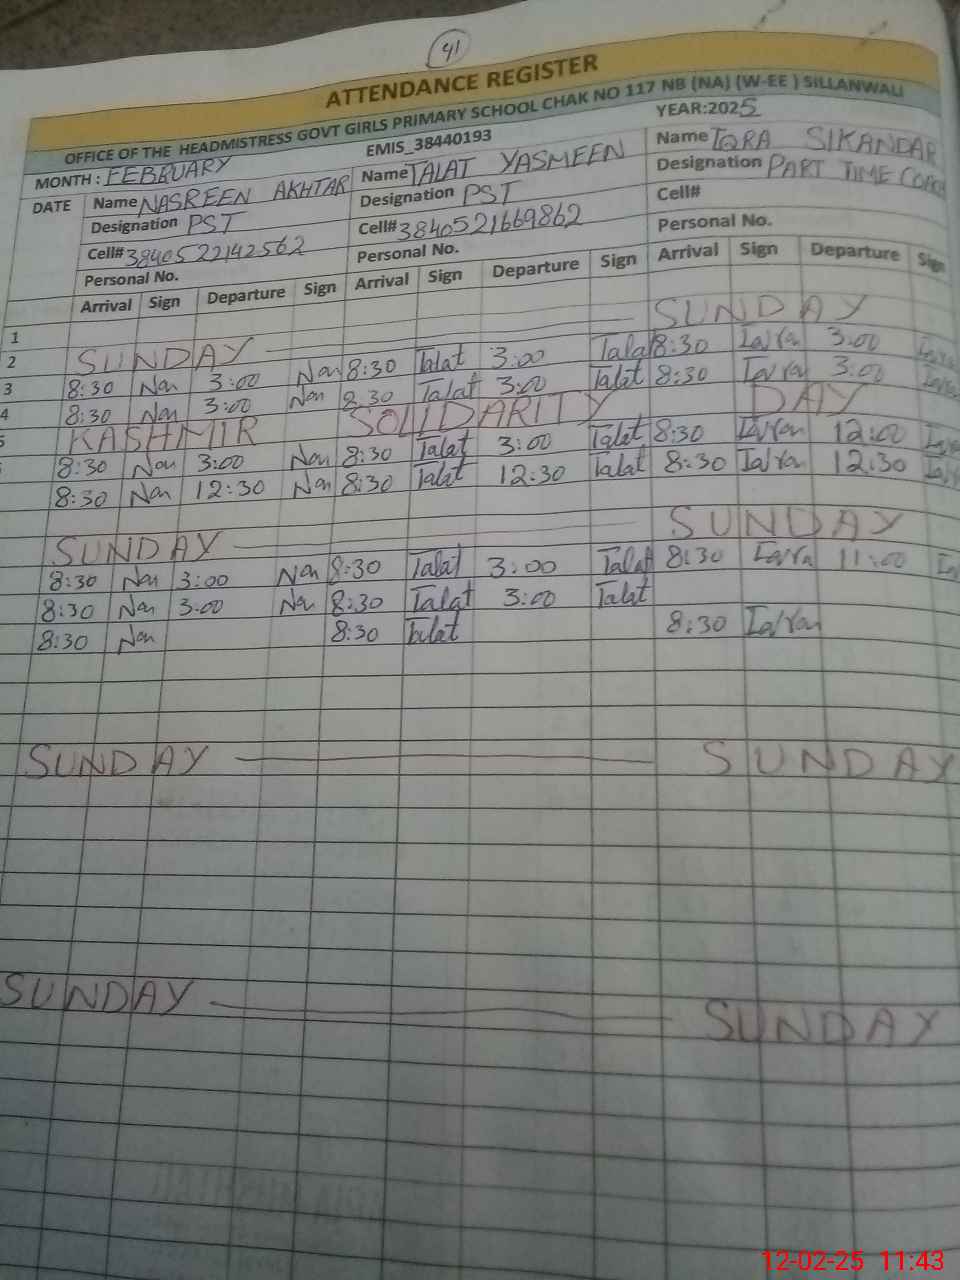 41
ATTENDANCE REGISTER
OFFICE OF THE HEADMISTRESS GOVT GIRLS PRIMARY SCHOOL CHAK NO 117 NB (NA) (W-EE ) SILLANWALI
MONTH : FEBRUARY EMIS_38440193 YEAR:2025
DATE Name NASREEN AKHTAR Name TALAT YASMEEN Name IQRA SIKANDAR
Designation PST Designation PST Designation PART TIME COACH
Cell# 3840522142562 Cell# 3840521669862 Cell#
Personal No. Personal No. Personal No.
Arrival Sign Departure Sign Arrival Sign Departure Sign Arrival Sign Departure Sign
1
2 SUNDAY SUNDAY
3 8:30 3:00 8:30 Talat 3:00 Talat 8:30 3:00
4 8:30 3:00 8:30 Talat 3:00 Talat 8:30 3:00
5 KASHMIR SOLIDARITY DAY
8:30 3:00 8:30 Talat 3:00 Talat 8:30 12:00
8:30 12:30 8:30 Talat 12:30 Talat 8:30 12:30
SUNDAY SUNDAY
8:30 3:00 8:30 Talat 3:00 Talat 8:30 11:00
8:30 3:00 8:30 Talat 3:00 Talat
8:30 8:30 Talat 8:30
SUNDAY SUNDAY
SUNDAY SUNDAY
12-02-25 11:43